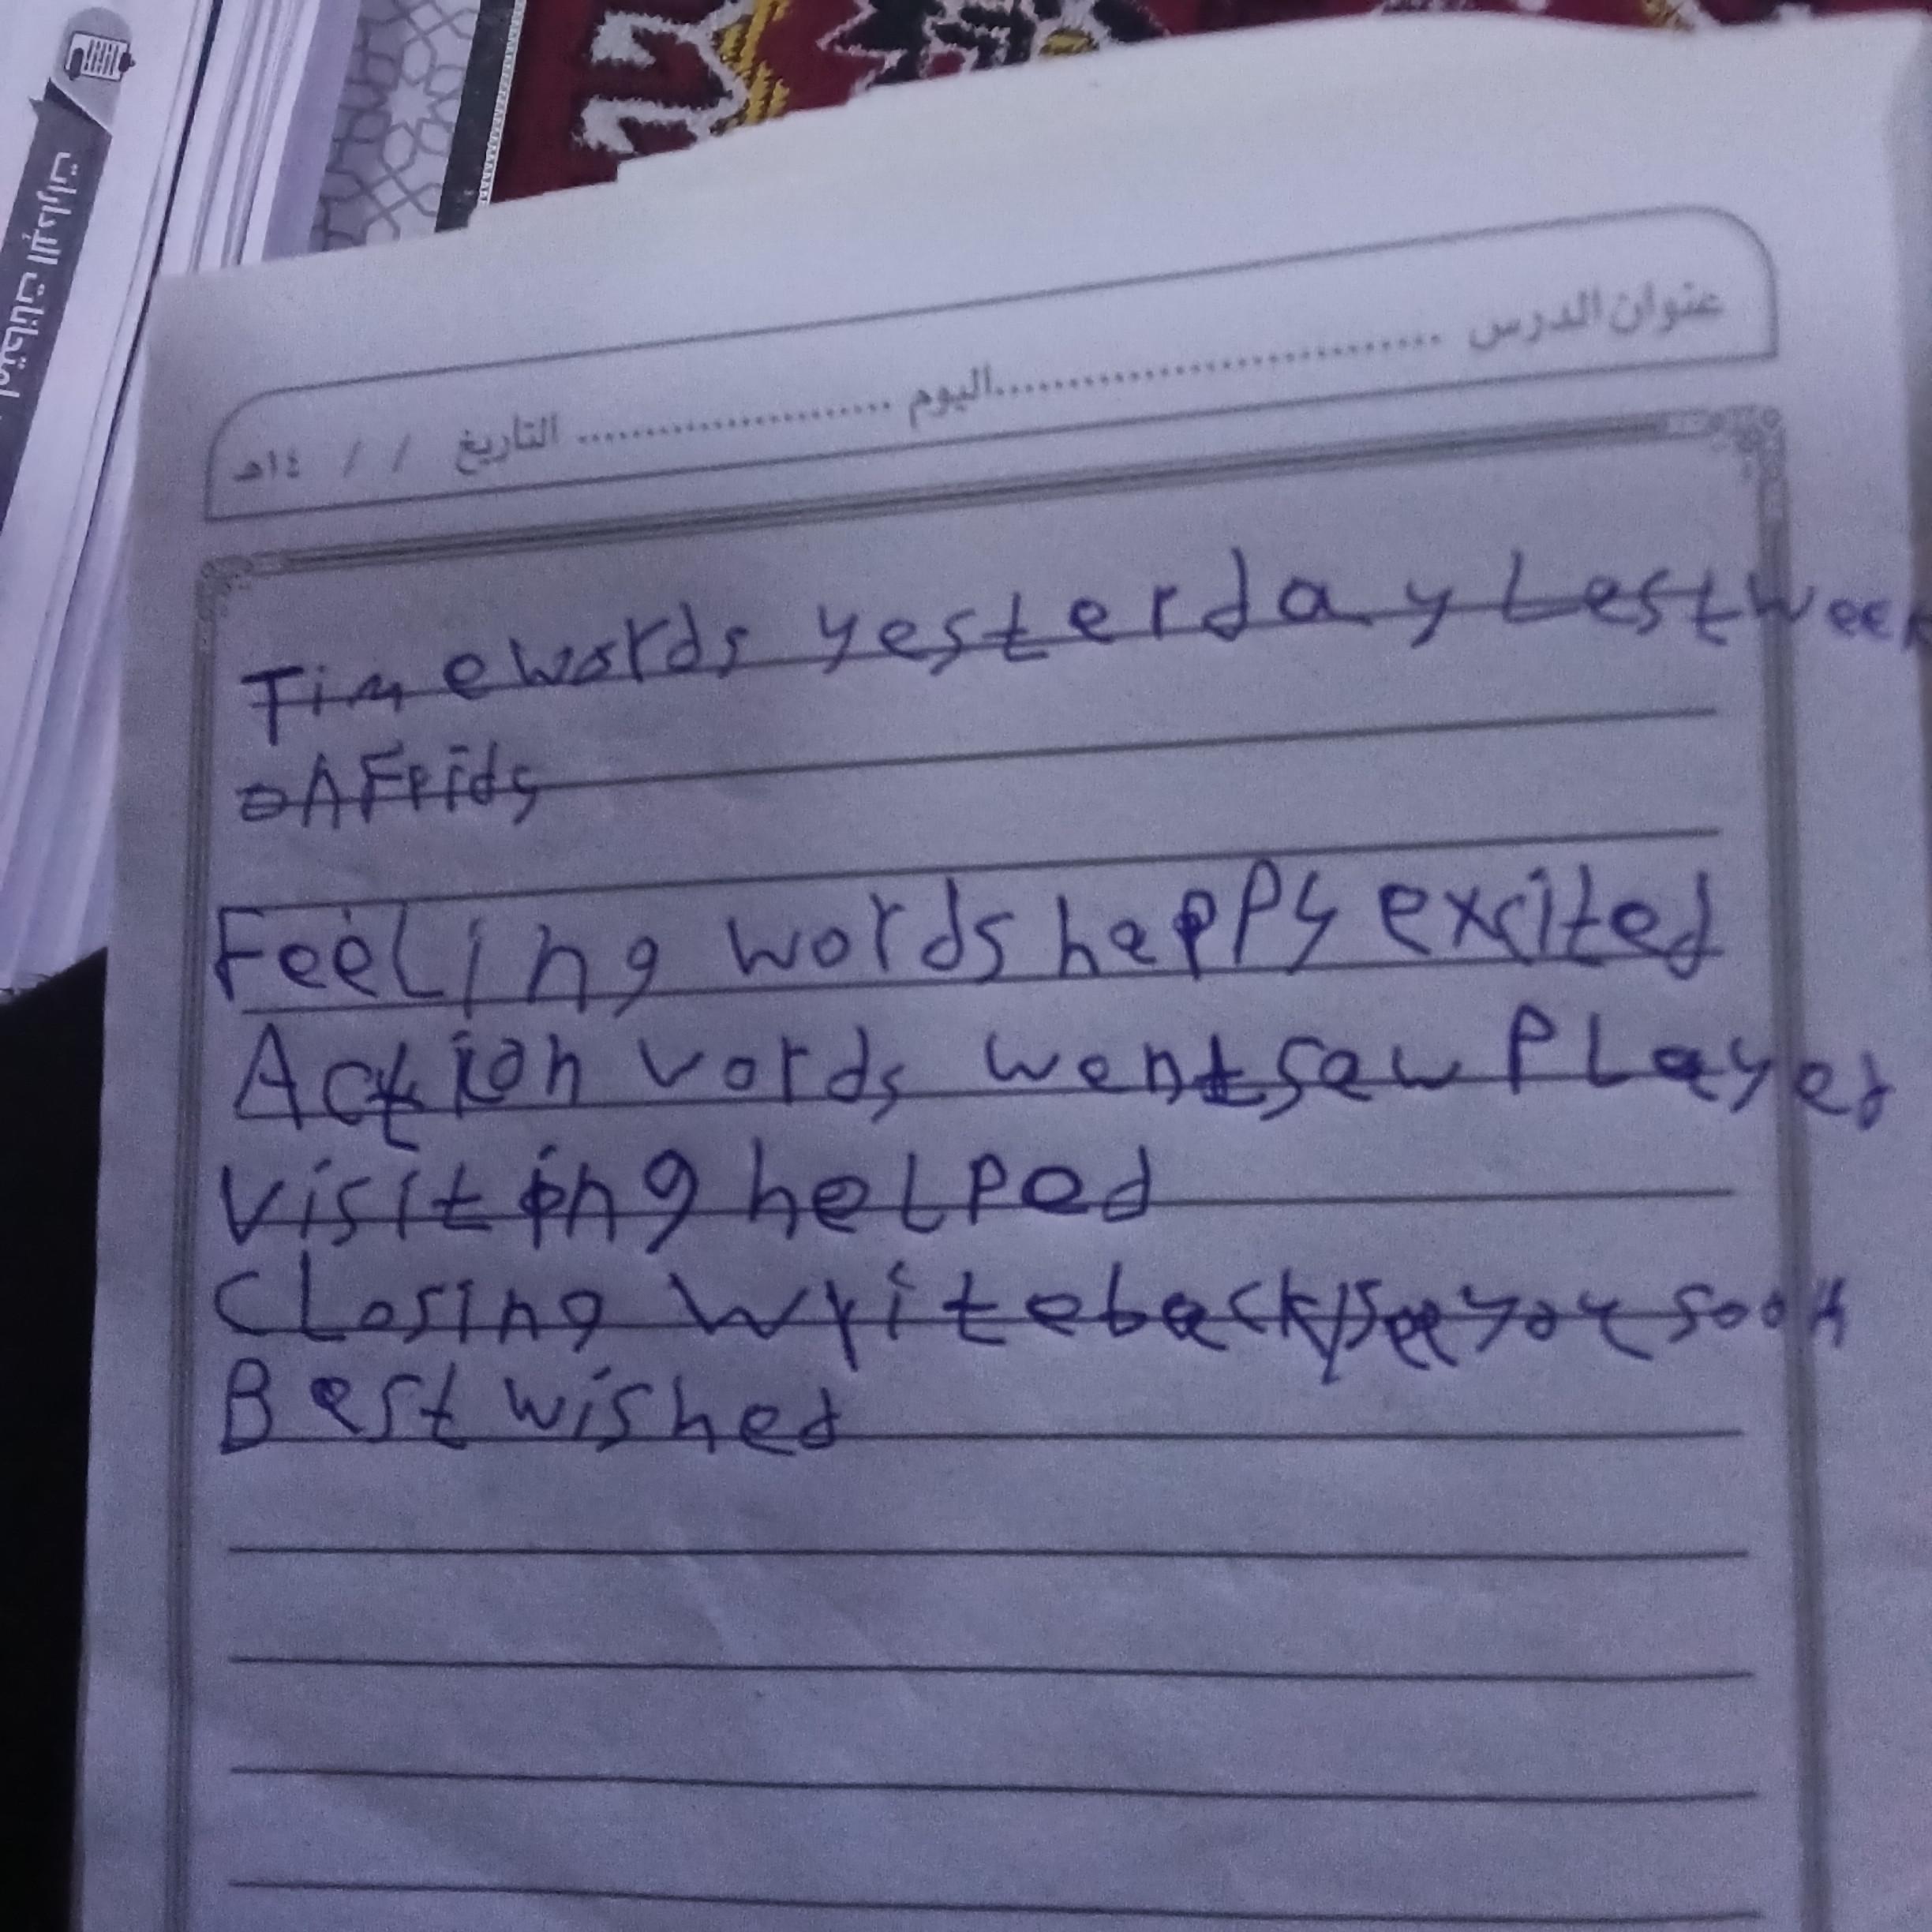 اختبارات
عنوان الدرس ........................ اليوم ........................ التاريخ / / ١٤هـ
Time words yesterday Lest week
on Frids
Feeling words heppy excited
Action vords went sew Pleyed
visiting helped
Closing write beck/see you soon
Best wished